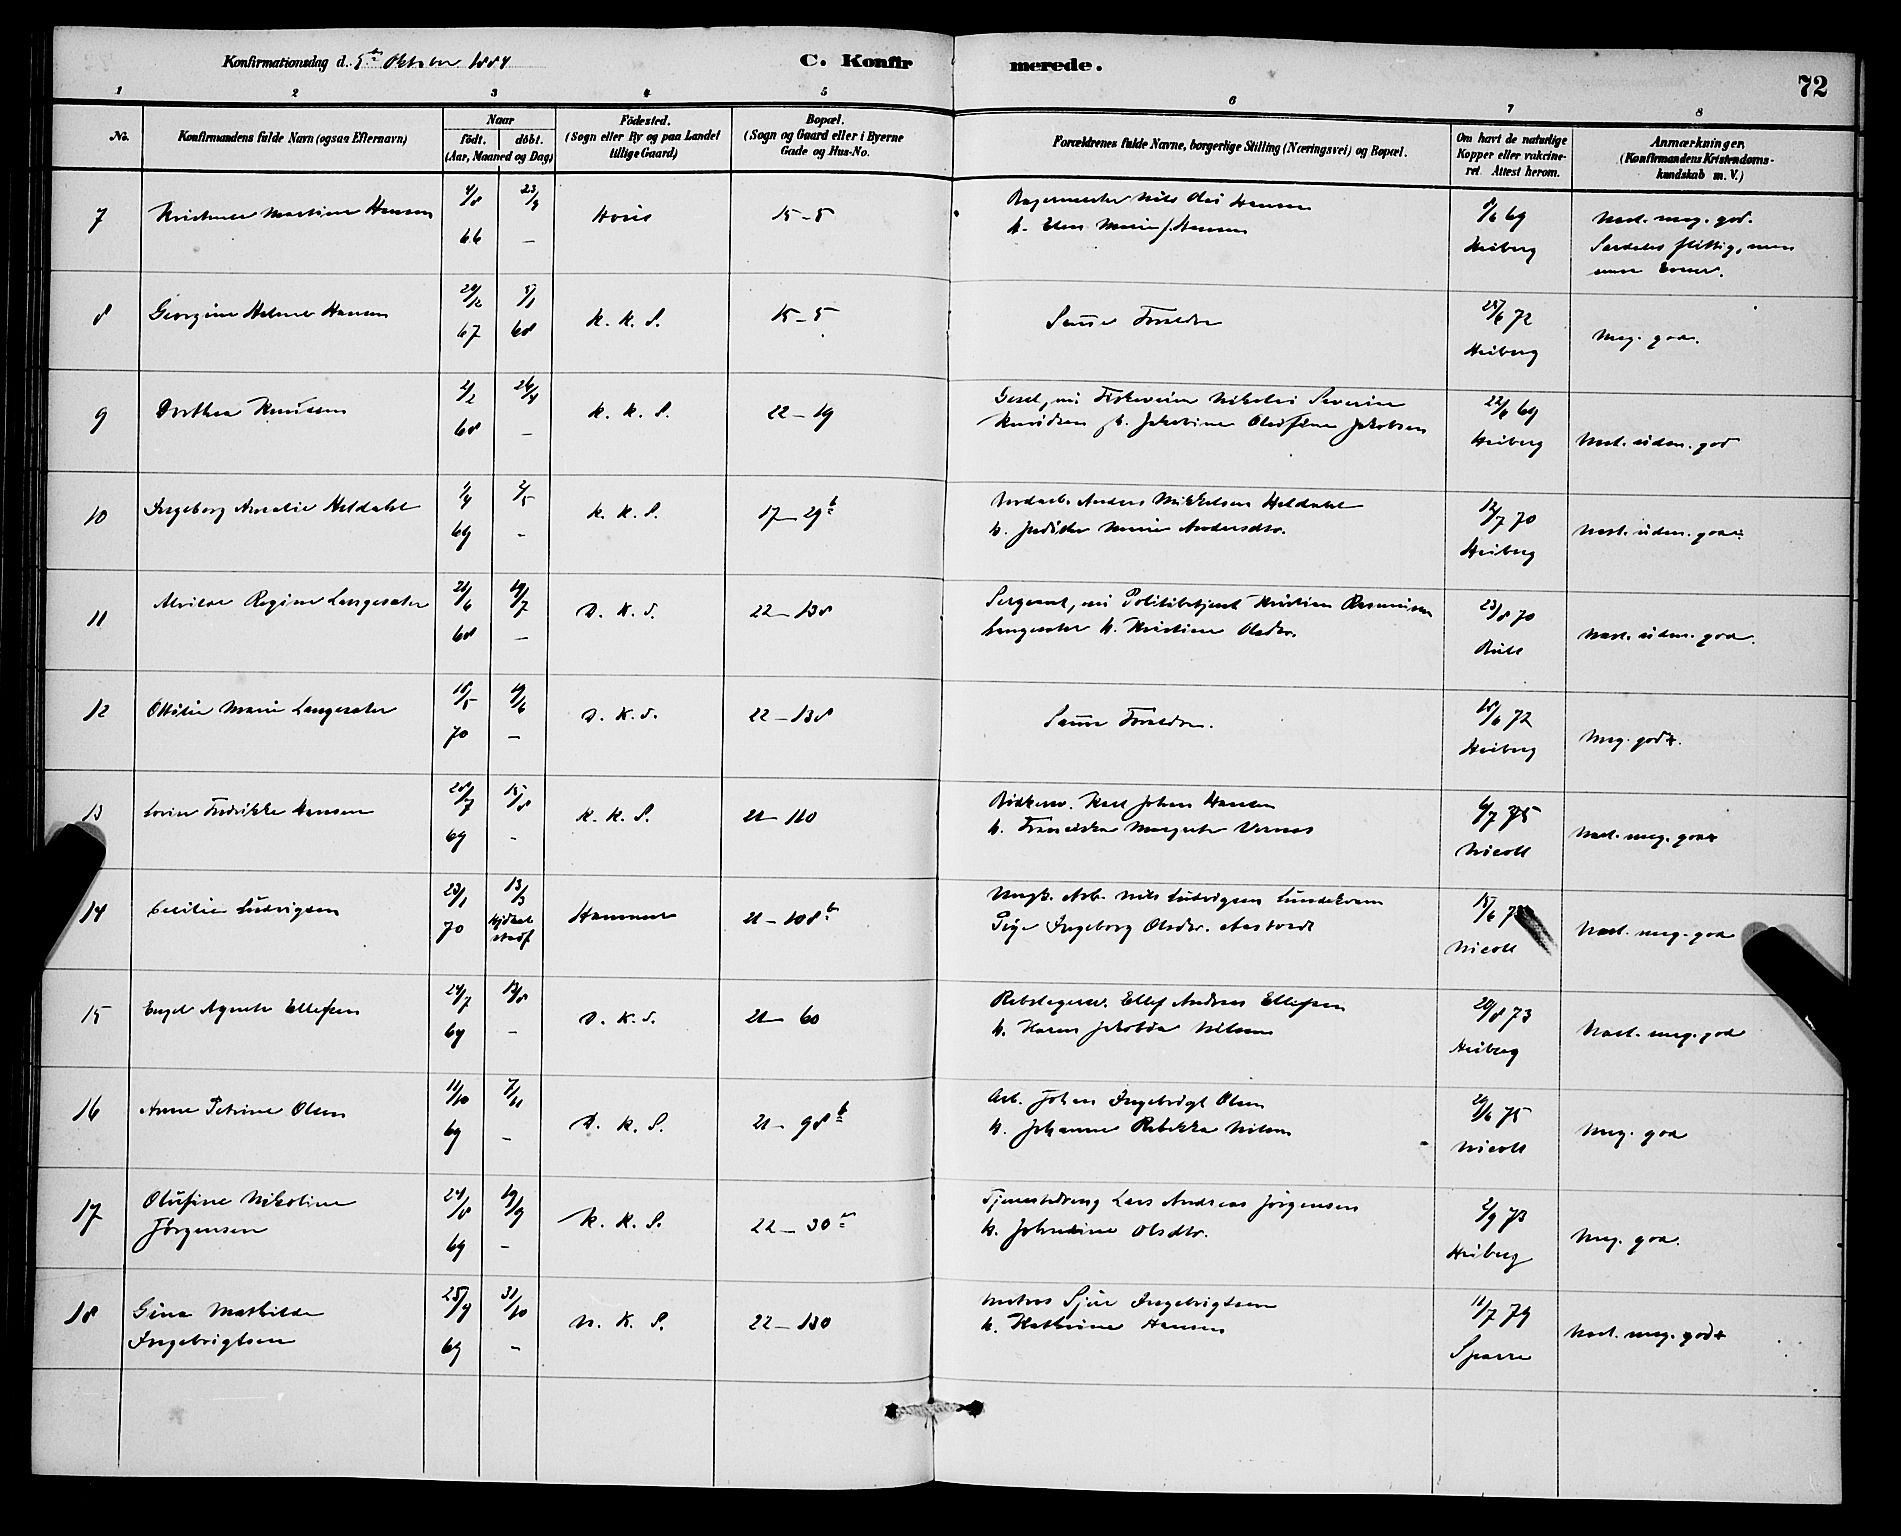 Konfirmationsdag d. 5te Oktober 1884
C. Konfirmerede.
72
1 2 3 4 5 6 7 8
No.
Konfirmandens fulde Navn (ogsaa Efternavn)
Naar
födt. döbt.
(Aar, Maaned og Dag)
Födested.
(Sogn eller By og paa Landet
tillige Gaard)
Bopæl.
(Sogn og Gaard eller i Byerne
Gade og Hus-No.
Forældrenes fulde Navne, borgerlige Stilling (Næringsvei) og Bopæl.
Om havt de naturlige
Kopper eller vakcine-
ret. Attest herom.
Anmærkninger.
(Konfirmandens Kristendoms-
kundskab m. V.)
7 Martine Hansen 4/8 66 23/9 – 15–5
Nils Olai Hansen
k. Elen Marie f. Hansen
69 Heiberg
Næst. meg. god.
Særdeles flittig, men
8 Georgine Helene Hansen 29/12 67 5/1 68 K. K. S. 15–5
Samme Forældre
25/6 72 Heiberg
Meg. god.
9 Dorthea Knudsen 2/2 68 26/4 – K. K. S. 22–19
Gesel, nu Nikolai Severin
Knudsen k. Jakobine Olufine Jakobsen
22/6 69 Heiberg
Næst. uden. god
10 Ingeborg Amalie Heldahl 1/4 69 2/5 – K. K. S. 17–29b
Anders Mikkelsen Heldahl
k. Marie Andersdtr.
12/7 70 Heiberg
Næst. uden. god.
11 Regine Langesæter 21/6 68 19/7 – D. K. S. 22–138
Sergeant, nu Politibetjent Kristian Rasmussen
Langesæter k. Kristine Olsdtr.
23/8 70 Bull
Næst. uden. god.
12 Ottilie Marie Langesæter 18/5 70 19/6 – D. K. S. 22–138
Samme Forældre.
18/6 72 Heiberg
Meg. god.
13 Fredrikke Hansen 28/7 69 15/8 – K. K. S. 21–110
Karl Johan Hansen
k. Margrete
6/7 75 Nicoll
Næst. meg. god
14 Cecilie Ludvigsen 23/1 70 13/3 Hammer 21–108b
Ungk. Arb. Nils Ludvigsen
Pige Ingeborg Olsdtr.
15/6 Nicoll
Næst. meg. god
15 Engel Agnete Ellefsen 24/7 69 – D. K. S. 21–60
Ellef Andreas Ellefsen
k. Karen Nilsen
20/8 73 Heiberg
Næst. meg. god
16 Anne Petrine Olsen 11/10 69 7/11 – D. K. S. 21–98b
Arb. Johan Ingebrigt Olsen
k. Johanne Rebekka Nilsen
29/6 75 Nicoll
Meg. god
17 Olufine Nikoline
Jörgensen 24/8 69 19/9 – K. K. S. 22–30a
Tjenestedreng Lars Andreas Jörgensen
k. Olsdtr.
2/9 73 Heiberg
Meg. god.
18 Gina Mathilde
Ingebrigtsen 25/9 69 31/10 – N. K. S. 22–130
Sjur Ingebrigtsen
k. Kathrine Hansen
11/7 79 Sparre
Næst. meg. god